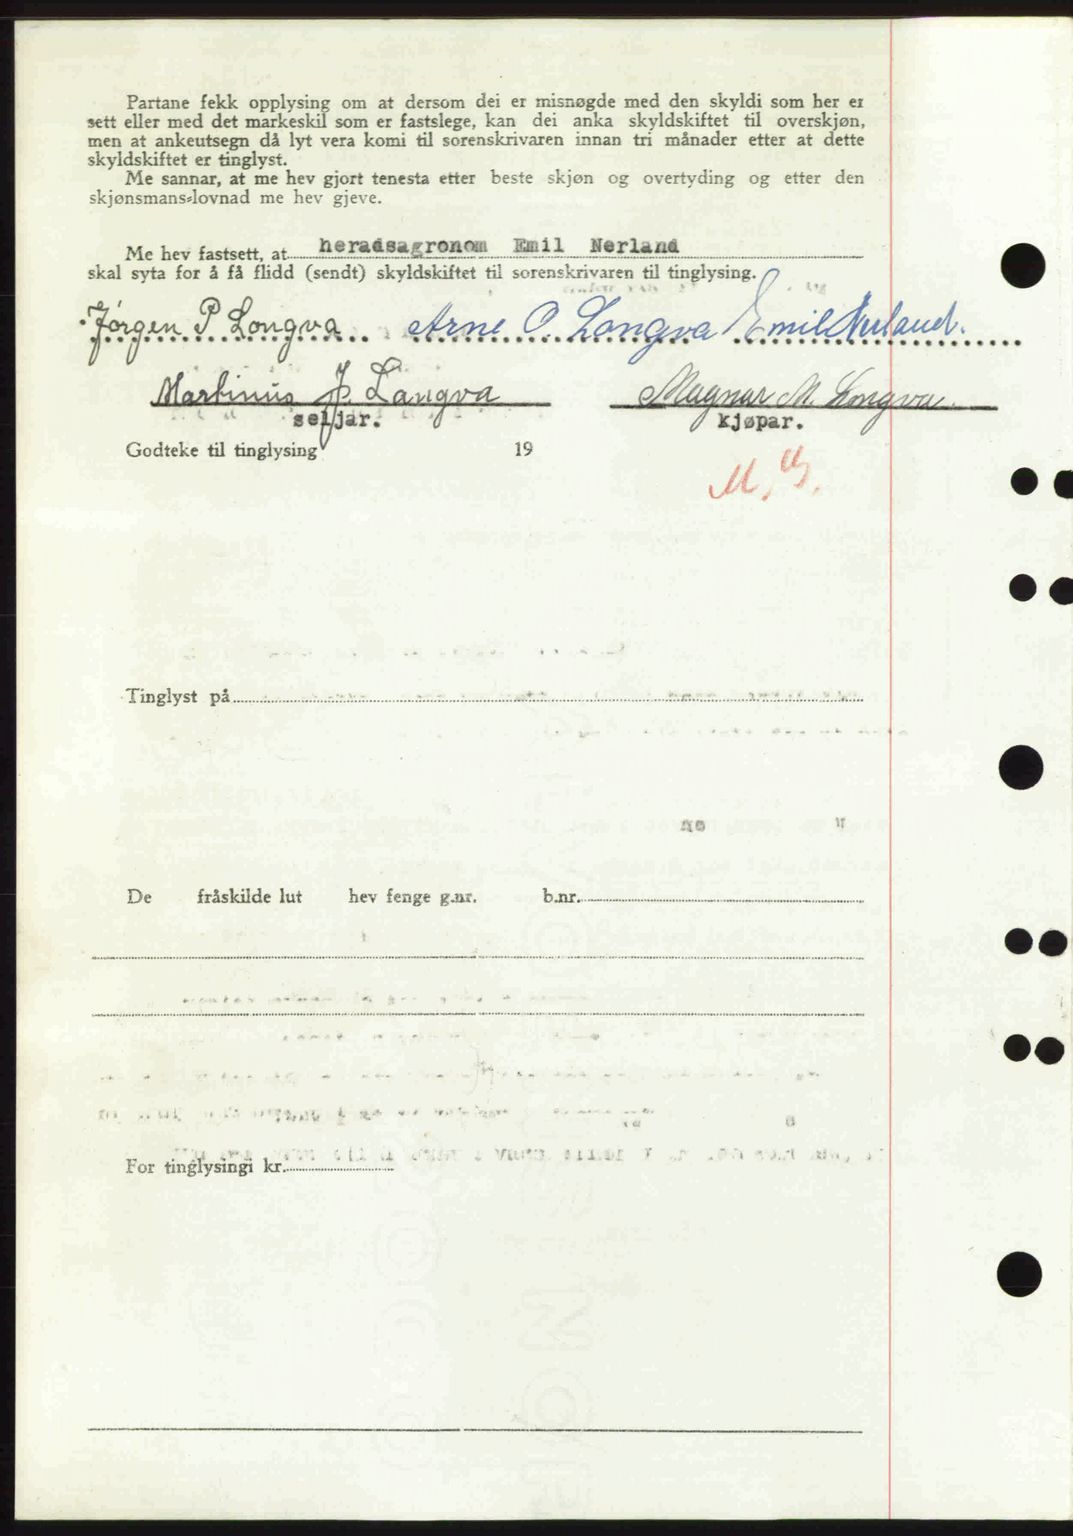 Partane fekk opplysing om at dersom dei er misnøgde med den skyldi som her er
sett eller med det markeskil som er fastslege, kan dei anka skyldskiftet til overskjøn,
men at ankeutsegn då lyt vera komi til sorenskrivaren innan tri månader etter at dette
skyldskiftet er tinglyst.
Me sannar, at me hev gjort tenesta etter beste skjøn og overtyding og etter den
skjønsmans-lovnad me hev gjeve.
Me hev fastsett, at heradsagronom Emil Nerland
skal syta for å få flidd (sendt) skyldskiftet til sorenskrivaren til tinglysing.
Jørgen P Longva Arne O. Longva Emil Nerland.
Martinus J. Langva Magnar M. Longva.
seljar. kjøpar.
Godteke til tinglysing 19
Tinglyst på
De fråskilde lut hev fenge g.nr. b.nr.
For tinglysingi kr.